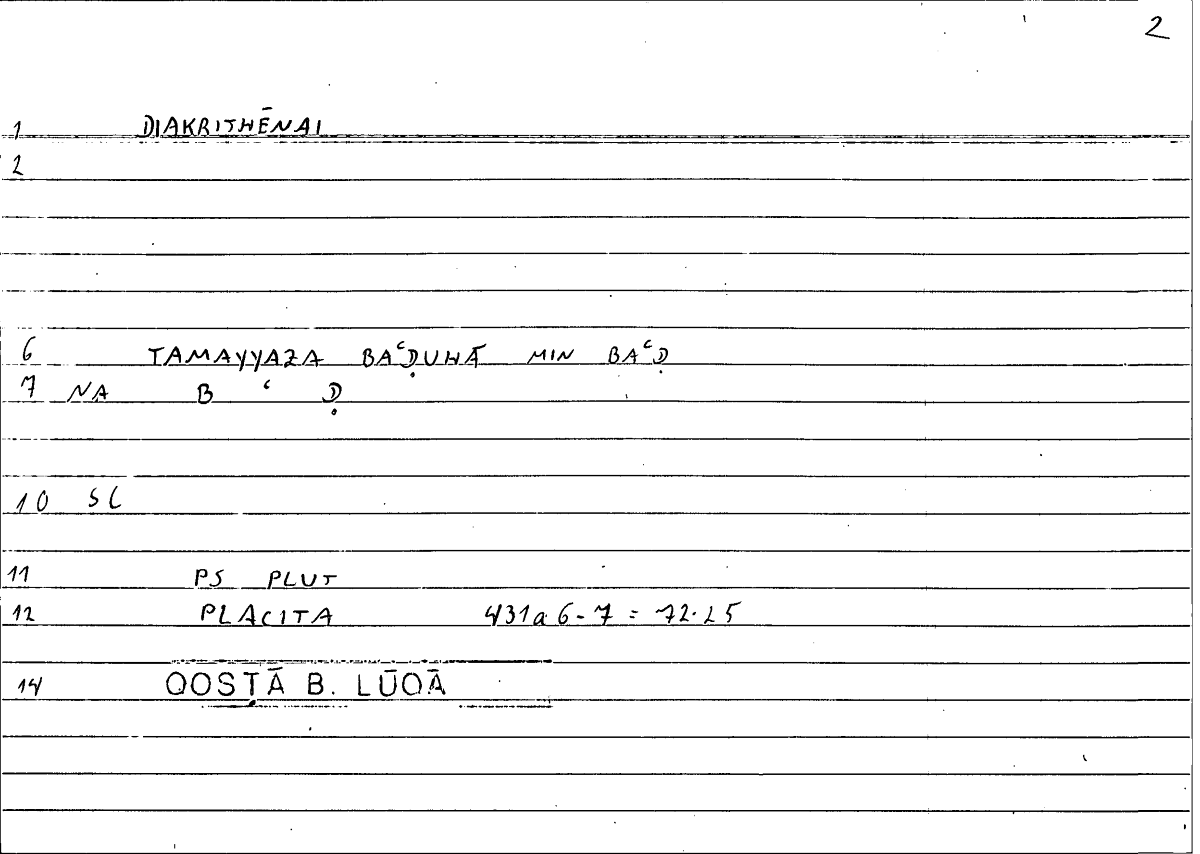 2
1 DIAKRITHĒNAI
2
6 TAMAYYAZA BAʿḌUHĀ MIN BAʿḌ
7 NA B ʿ Ḍ
10 SL
11 PS PLUT
12 PLACITA 431a 6-7 = 72.25
14 QOSṬĀ B. LŪQĀ